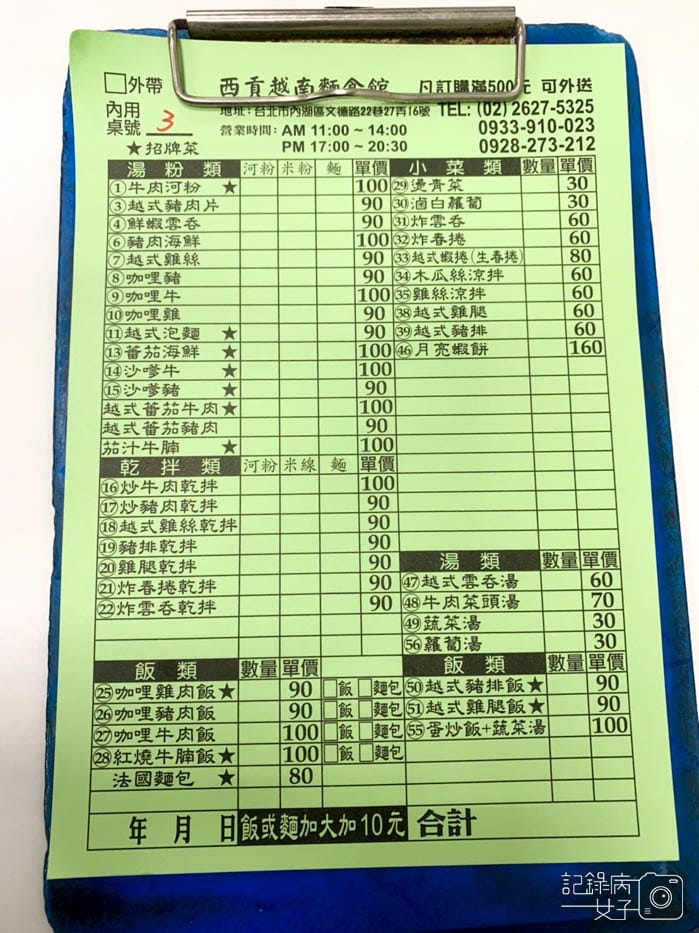 □外帶 西貢越南麵食館 凡訂購滿500元 可外送
內用
桌號 3
地址：台北市內湖區文德路22巷27弄16號 TEL: (02) 2627-5325
營業時間：AM 11:00 ~ 14:00 0933-910-023
★招牌菜 PM 17:00 ~ 20:30 0928-273-212
湯粉類 河粉 米粉 麵 單價
①牛肉河粉 ★ 100
③越式豬肉片 90
④鮮蝦雲吞 90
⑥豬肉海鮮 100
⑦越式雞絲 90
⑧咖哩豬 90
⑨咖哩牛 100
⑩咖哩雞 90
⑪越式泡麵 ★ 90
⑬蕃茄海鮮 ★ 100
⑭沙嗲牛 ★ 100
⑮沙嗲豬 ★ 90
越式蕃茄牛肉 ★ 100
越式蕃茄豬肉 90
茄汁牛腩 ★ 100
乾拌類 河粉 米線 麵 單價
⑯炒牛肉乾拌 100
⑰炒豬肉乾拌 90
⑱越式雞絲乾拌 90
⑲豬排乾拌 90
⑳雞腿乾拌 90
㉑炸春捲乾拌 90
㉒炸雲吞乾拌 90
飯類 數量 單價
㉕咖哩雞肉飯★ 90 □飯 □麵包
㉖咖哩豬肉飯 90 □飯 □麵包
㉗咖哩牛肉飯 100 □飯 □麵包
㉘紅燒牛腩飯★ 100 □飯 □麵包
法國麵包 ★ 80
小菜類 數量 單價
㉙燙青菜 30
㉚滷白蘿蔔 30
㉛炸雲吞 60
㉜炸春捲 60
㉝越式蝦捲(生春捲) 80
㉞木瓜絲涼拌 60
㉟雞絲涼拌 60
㊳越式雞腿 60
㊴越式豬排 60
㊻月亮蝦餅 160
湯類 數量 單價
㊼越式雲吞湯 60
㊽牛肉菜頭湯 70
㊾蔬菜湯 30
56蘿蔔湯 30
飯類 數量 單價
㊿越式豬排飯★ 90
51越式雞腿飯★ 90
55蛋炒飯+蔬菜湯 100
年 月 日 飯或麵加大加10元 合計
記錄病女子